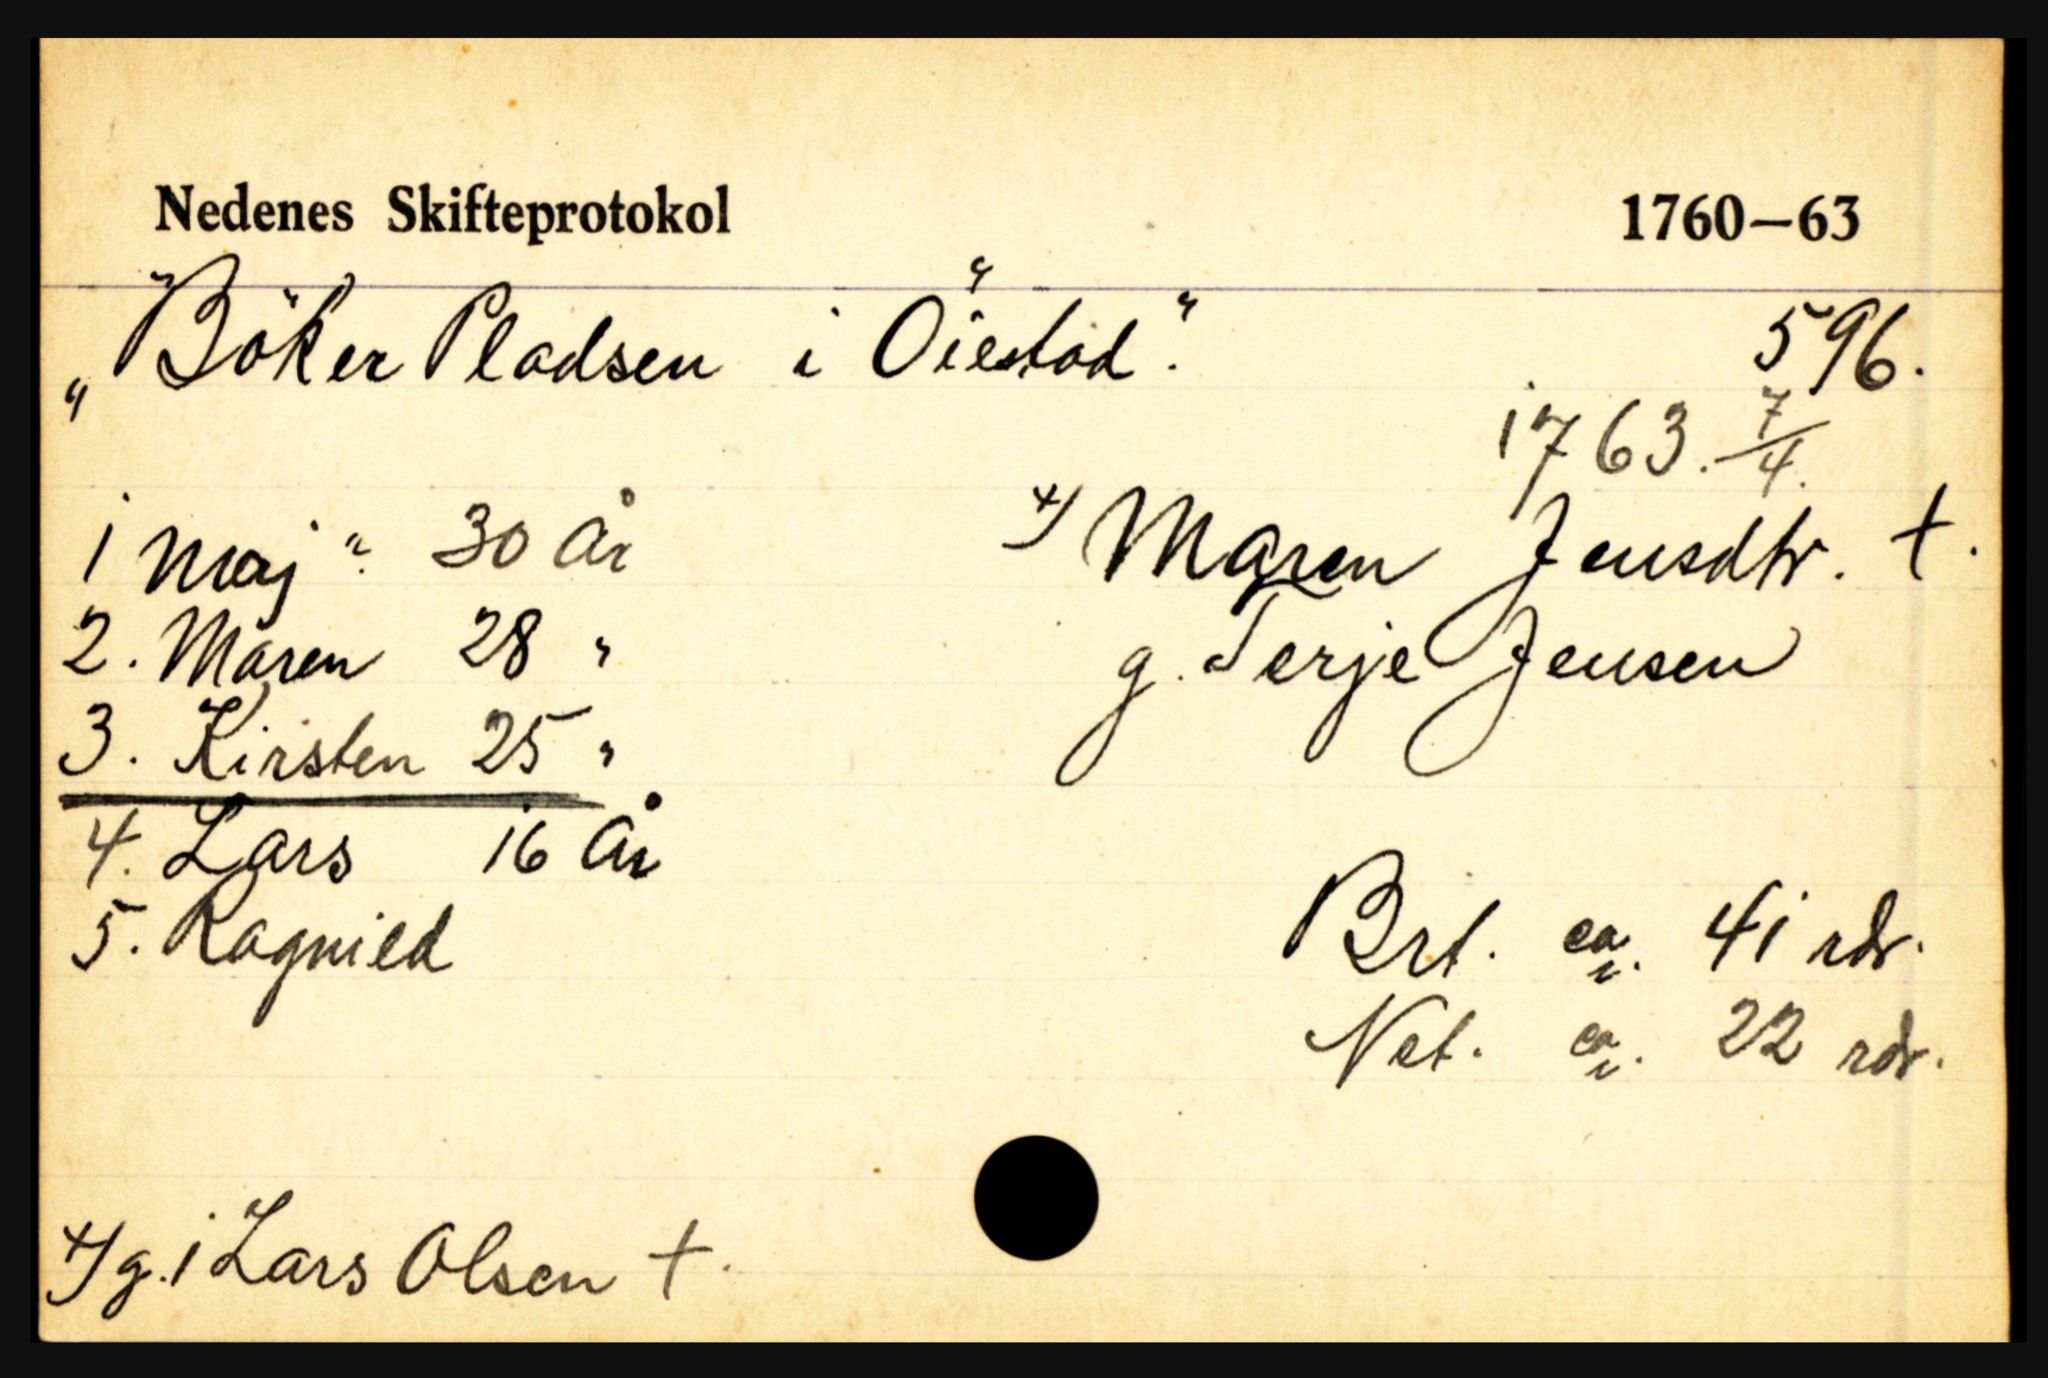 Nedenes Skifteprotokol 1760—63
„Böker Pladsen i Öiestad". 596.
1763. 7/4.
1 Maj ". 30 År +) Maren Jensdtr. †.
2. Maren 28 " g. Terje Jensen
3. Kirsten 25 "
4. Lars 16 År
5. Ragnild Brt. ca. 41 rdr.
Net. ca. 22 rdr.
+) g. 1 Lars Olsen †.